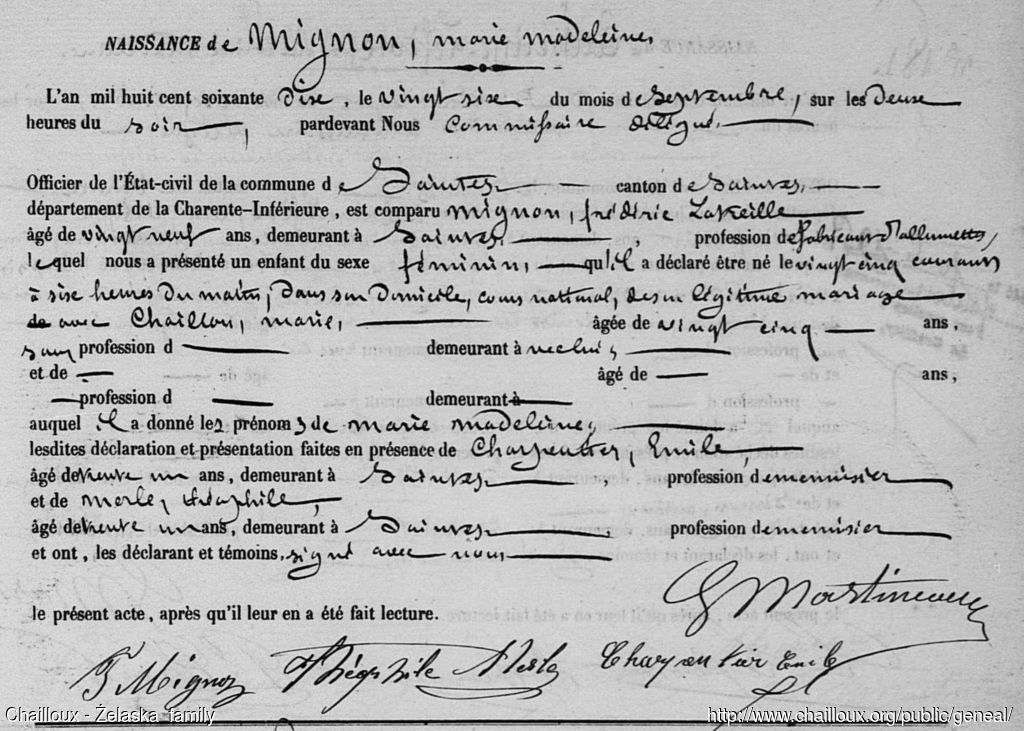 NAISSANCE de Mignon, marie madeleine,
L'an mil huit cent soixante dise, le vingt sise du mois de Septembre, sur les deuse
heures du soir, pardevant Nous Commissaire délégué,
Officier de l'État-civil de la commune de Saintes canton de Saintes,
département de la Charente-Inférieure, est comparu mignon, frédéric
âgé de vingt neuf ans, demeurant à Saintes, profession de fabricant d'allumettes,
lequel nous a présenté un enfant du sexe féminin, qu'il a déclaré être né le vingt cinq courant
à sise heures du matin, dans son domicile, cours national, de son légitime mariage
de avec Chaillou, marie, âgée de vingt cinq ans,
sans profession d demeurant à
et de âgé de ans,
profession d demeurant à
auquel il a donné les prénoms de marie madeleine,
lesdites déclaration et présentation faites en présence de Charpentier, Emile,
âgé de trente un ans, demeurant à Saintes, profession de menuisier
et de merle, théophile,
âgé de trente un ans, demeurant à Saintes, profession de menuisier
et ont, les déclarant et témoins, signé avec nous
le présent acte, après qu'il leur en a été fait lecture.
G Martineau
F Mignon Théophile Merle Charpentier Emile
Chailloux - Żelaska family http://www.chailloux.org/public/geneal/